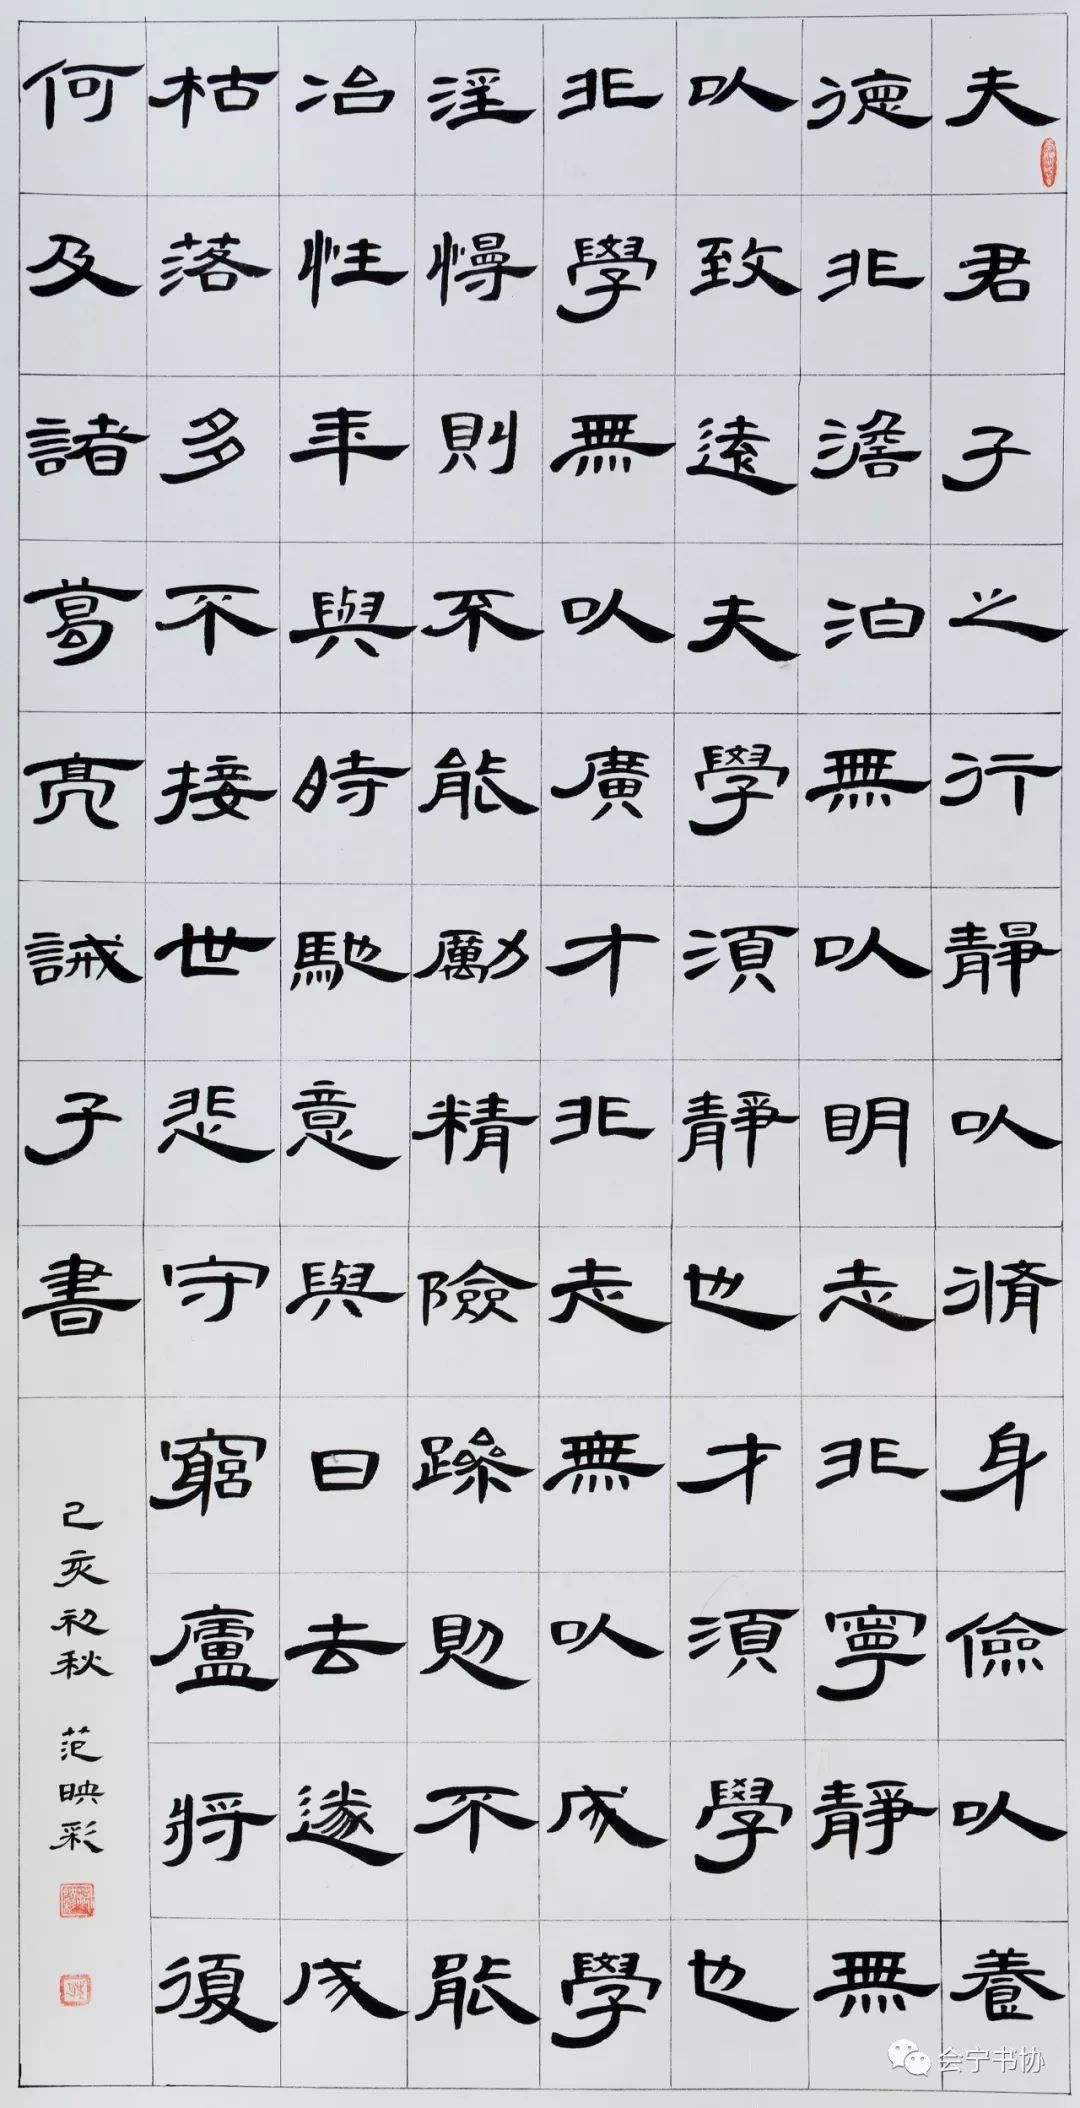 夫君子之行靜以脩身儉以養
德非澹泊無以明志非寧靜無
以致遠夫學須靜也才須學也
非學無以廣才非志無以成學
淫慢則不能勵精險躁則不能
冶性年與時馳意與日去遂成
枯落多不接世悲守窮廬將復
何及諸葛亮誡子書
己亥初秋 范映彩
会宁书协